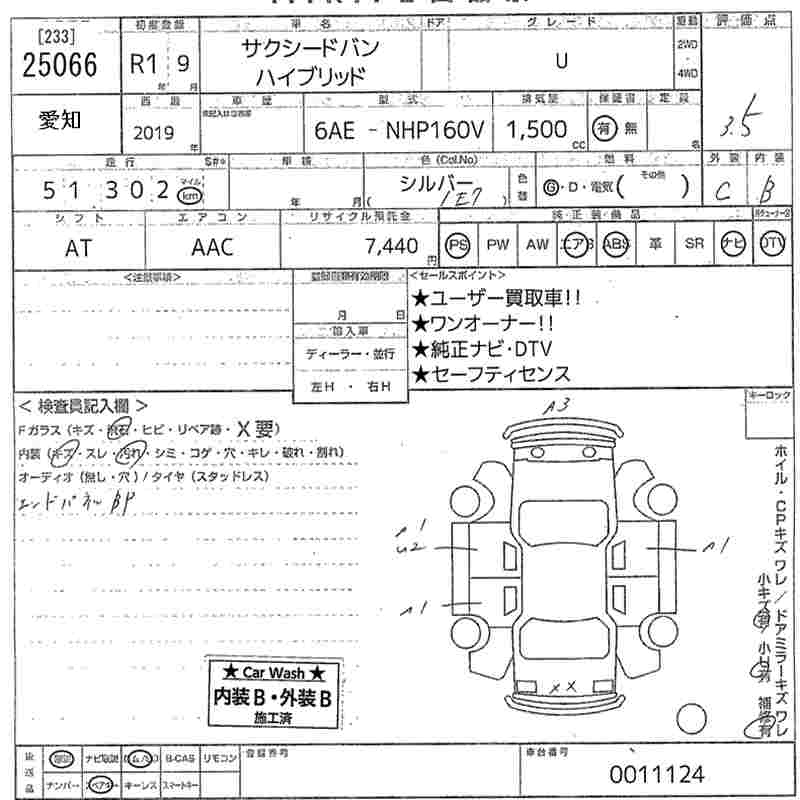 [233]
25066
初度登録
車名
ドア
グレード
駆動
評価点
R1 9
年
月
サクシードバン
ハイブリッド
U
2WD
・
4WD
愛知
西暦
2019
年
車歴
型式
6AE - NHP160V
排気量
1,500
CC
保証書
有 無
定員
名
3.5
走行
車検
色 (Col.No)
燃料
外装
内装
51302
マイル
km
年
月
シルバー
( 1E7 )
色替
G・D・電気( その他 )
C
B
シフト
エアコン
リサイクル預託金
純正装備品
AT
AAC
7,440
円
PS PW AW エアB ABS 革 SR ナビ DTV
<注意事項>
<セールスポイント>
月 日
★ユーザー買取車!!
★ワンオーナー!!
★純正ナビ・DTV
★セーフティセンス
輸入車
ディーラー・並行
左H ・ 右H
< 検査員記入欄 >
キーロック
Fガラス (キズ・飛石・ヒビ・リペア跡・X要)
内装 (キズ・スレ・汚れ・シミ・コゲ・穴・キレ・破れ・割れ)
オーディオ (無し・穴) / タイヤ (スタッドレス)
エンドパネルBP
A3
A1
U2
A1
A1
XX
ホイル・CPキズ ワレ / ドアミラーキズ ワレ
小キズ有 / 小U有 補修有
★ Car Wash ★
内装B・外装B
施工済
後送品
ナビ取説
B-CAS
リモコン
ナンバー
スペアキー
キーレス
スマートキー
登録番号
車台番号
0011124